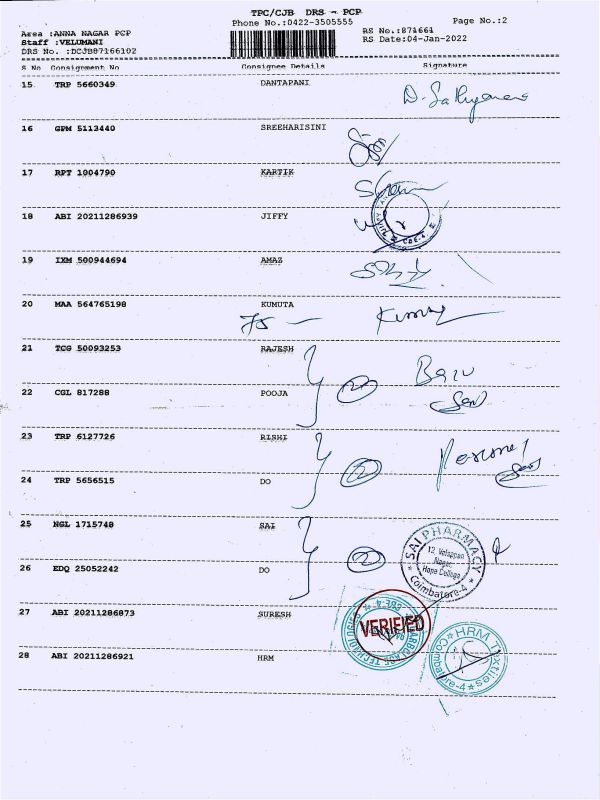 TPC/CJB DRS - PCP
Phone No.:0422-3505555
Page No.:2
Area :ANNA NAGAR PCP
Staff :VELUMANI
DRS No. :DCJB87166102
RS No.:871661
RS Date:04-Jan-2022
S No Consignment No Consignee Details Signature
15 TRP 5660349 DANTAPANI
16 GPM 5113440 SREEHARISINI
17 RPT 1004790 KARTIK
18 ABI 20211286939 JIFFY
19 IXM 500944694 AMAZ
20 MAA 564765198 KUMUTA
21 TCG 50093253 RAJESH
22 CGL 817288 POOJA
23 TRP 6127726 RISHI
24 TRP 5656515 DO
25 NGL 1715748 SAI
SAI PHARMACY
12, Velappan
Nagar,
Hope College
Coimbatore-4
26 EDQ 25052242 DO
27 ABI 20211286873 SURESH
VERIFIED
28 ABI 20211286921 HRM
HRM Textiles
Coimbatore-4